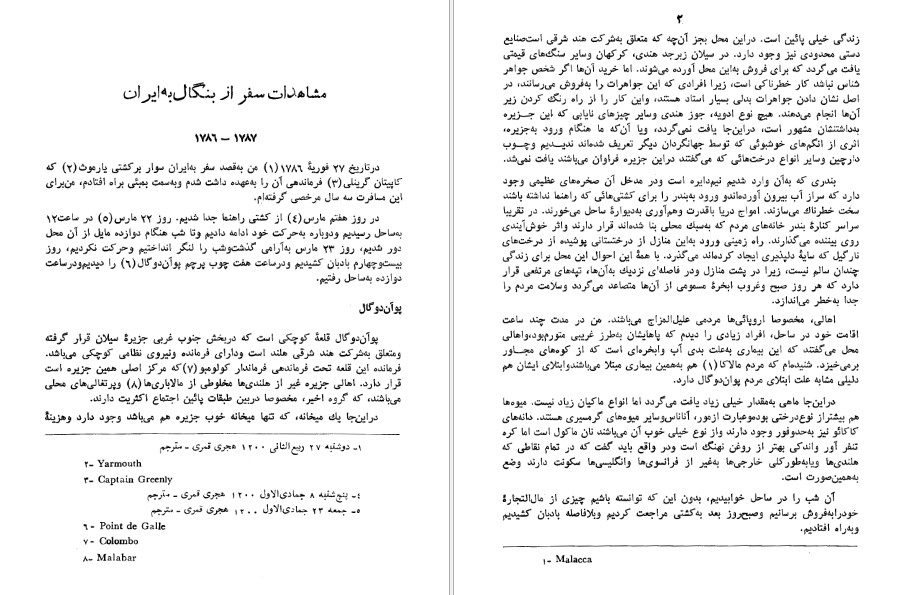 مشاهدات سفر از بنگال به ایران
۱۷۸۷ - ۱۷۸۶
درتاریخ ۲۷ فوریهٔ ۱۷۸۶ (۱) من به‌قصد سفر به‌ایران سوار برکشتی یارموث (۲) که
کاپیتان گرینلی (۳) فرماندهی آن را به‌عهده داشت شدم وبه‌سمت بمبئی براه افتادم، من‌برای
این مسافرت سه سال مرخصی گرفته‌ام.
در روز هفتم مارس (٤) از کشتی راهنما جدا شدیم. روز ۲۲ مارس (٥) در ساعت۱۲
به‌ساحل رسیدیم ودوباره به‌حرکت خود ادامه دادیم وتا شب هنگام دوازده مایل از آن محل
دور شدیم، روز ۲۳ مارس به‌آرامی گذشت‌وشب را لنگر انداختیم وحرکت نکردیم، روز
بیست‌وچهارم بادبان کشیدیم ودرساعت هفت چوب پرچم پوآن‌دوگال (٦) را دیدیم‌ودرساعت
دوازده به‌ساحل رفتیم.
پوآن‌دوگال
پوآن‌دوگال قلعهٔ کوچکی است که دربخش جنوب غربی جزیرهٔ سیلان قرار گرفته
ومتعلق به‌شرکت هند شرقی هلند است ودارای فرمانده ونیروی نظامی کوچکی می‌باشد.
فرمانده این قلعه تحت فرماندهی فرماندار کولومبو (۷) که مرکز اصلی همین جزیره است
قرار دارد. اهالی جزیره غیر از هلندی‌ها مخلوطی از مالاباری‌ها (۸) وپرتغالی‌های محلی
می‌باشند، که گروه اخیر، مخصوصا دربین طبقات پائین اجتماع اکثریت دارند.
دراین‌جا یك میخانه، که تنها میخانه خوب جزیره هم می‌باشد وجود دارد وهزینهٔ
۱- دوشنبه ۲۷ ربیع‌الثانی ۱۲۰۰ هجری قمری - مترجم
۲- Yarmouth
۳- Captain Greenly
٤- پنج‌شنبه ۸ جمادی‌الاول ۱۲۰۰ هجری قمری - مترجم
٥- جمعه ۲۳ جمادی‌الاول ۱۲۰۰ هجری قمری - مترجم
٦- Point de Galle
۷- Colombo
۸- Malabar
۲
زندگی خیلی پائین است. دراین محل بجز آن‌چه که متعلق به‌شرکت هند شرقی است‌صنایع
دستی محدودی نیز وجود دارد. در سیلان زبرجد هندی، کرکهان وسایر سنگ‌های قیمتی
یافت می‌گردد که برای فروش به‌این محل آورده می‌شوند. اما خرید آن‌ها اگر شخص جواهر
شناس نباشد کار خطرناکی است، زیرا افرادی که این جواهرات را به‌فروش می‌رسانند، در
اصل نشان دادن جواهرات بدلی بسیار استاد هستند، واین کار را از راه رنگ کردن زیر
آن‌ها انجام می‌دهند. هیچ نوع ادویه، جوز هندی وسایر چیزهای نایابی که این جـزیره
به‌داشتنشان مشهور است، دراین‌جا یافت نمی‌گردد، ویا آن‌که ما هنگام ورود به‌جزیره،
اثری از انگم‌های خوشبوئی که توسط جهانگردان دیگر تعریف شده‌اند ندیـدیم وچـوب
دارچین وسایر انواع درخت‌هائی که می‌گفتند دراین جزیره فراوان می‌باشند یافت نمی‌شد.
بندری که به‌آن وارد شدیم نیم‌دایره است ودر مدخل آن صخره‌های عظیمی وجود
دارد که سراز آب بیرون آورده‌اندو ورود به‌بندر را برای کشتی‌هائی که راهنما نداشته باشند
سخت خطرناك می‌سازند. امواج دریا باقدرت وهم‌آوری به‌دیوارهٔ ساحل می‌خورند. در تقریبا
سراسر کنارهٔ بندر خانه‌های مردم که به‌سبك محلی بنا شده‌اند قرار دارند واثر خوش‌آیندی
روی بیننده می‌گذارند. راه زمینی ورود به‌این منازل از درختستانی پوشیده از درخت‌های
نارگیل که سایهٔ دلپذیری ایجاد کرده‌اند می‌گذرد. با همهٔ این احوال این محل برای زندگی
چندان سالم نیست، زیرا در پشت منازل ودر فاصله‌ای نزدیك به‌آن‌ها، تپه‌های مرتفعی قرار
دارد که هر روز صبح وغروب ابخرهٔ مسمومی از آن‌ها متصاعد می‌گردد وسلامت مردم را
جدا به‌خطر می‌اندازد.
اهالی، مخصوصا اروپائی‌ها مردمی علیل‌المزاج می‌باشند. من در مدت چند ساعت
اقامت خود در ساحل، افراد زیادی را دیدم که پاهایشان به‌طرز غریبی متورم‌بود،واهالی
محل می‌گفتند که این بیماری به‌علت بدی آب وابخره‌ای است که از کوه‌های مجـاور
برمی‌خیزد. شنیده‌ام که مردم مالاکا (۱) هم به‌همین بیماری مبتلا می‌باشندوابتلای ایشان هم
دلیلی مشابه علت ابتلای مردم پوان‌دوگال دارد.
دراین‌جا ماهی به‌مقدار خیلی زیاد یافت می‌گردد اما انواع ماکیان زیاد نیست. میوه‌ها
هم بیشتراز نوع‌درختی بودموعبارت ازموز، آناناس‌وسایر میوه‌های گرمسیری هستند. دانه‌های
کاکائو نیز به‌حدوفور وجود دارند واز نوع خیلی خوب آن می‌باشند نان ماکول است اما کره
تنفر آور واندکی بهتر از روغن نهنگ است ودر واقع باید گفت که در تمام نقاطی که
هلندی‌ها ویابه‌طورکلی خارجی‌ها به‌غیر از فرانسوی‌ها وانگلیسی‌ها سکونت دارند وضع
به‌همین‌صورت است.
آن شب را در ساحل خوابیدیم، بدون این که توانسته باشیم چیزی از مال‌التجارهٔ
خودرابه‌فروش برسانیم وصبح‌روز بعد به‌کشتی مراجعت کردیم وبلافاصله بادبان کشیدیم
وبه‌راه افتادیم.
۱- Malacca